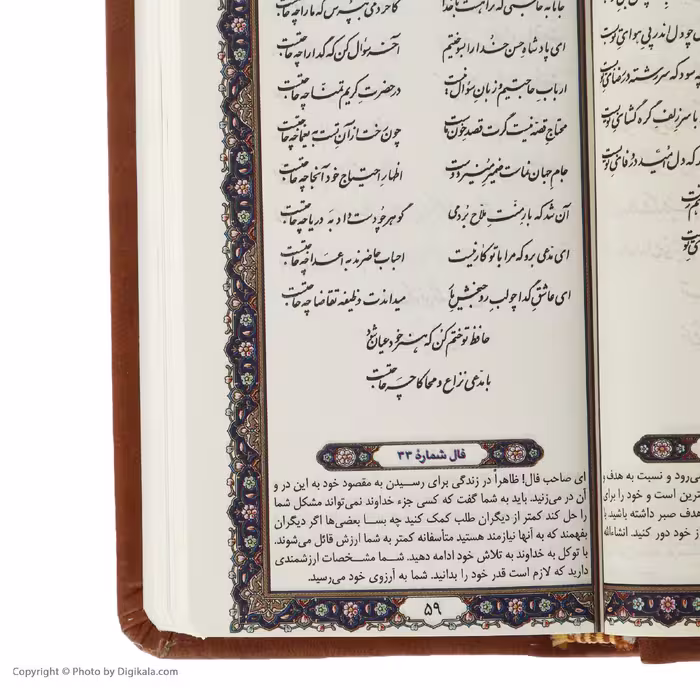 جانا به حاجتی که ترا هست با خدا کاخر دمی بپرس که ما را چه حاجتست
ای پادشاه حسن خدا را بسوختیم آخر سؤال کن که گدا را چه حاجتست
ارباب حاجتیم و زبان سؤال نیست در حضرت کریم تمنا چه حاجتست
محتاج قصه نیست گرت قصد خون ماست چون رخت از آن تست به یغما چه حاجتست
جام جهان نماست ضمیر منیر دوست اظهار احتیاج خود آنجا چه حاجتست
آن شد که بار منت ملاح بردمی گوهر چو دست داد به دریا چه حاجتست
ای مدعی برو که مرا با تو کار نیست احباب حاضرند به اعدا چه حاجتست
ای عاشق گدا چو لب روح‌بخش یار میداندت وظیفه تقاضا چه حاجتست
حافظ تو ختم کن که هنر خود عیان شود
با مدعی نزاع و محاکا چه حاجتست
فال شمارهٔ ۳۳
ای صاحب فال! ظاهراً در زندگی برای رسیدن به مقصود خود به این در و
آن در می‌زنید. باید به شما گفت که کسی جزء خداوند نمی‌تواند مشکل شما
را حل کند کمتر از دیگران طلب کمک کنید چه بسا بعضی‌ها اگر دیگران
بفهمند که به آنها نیازمند هستید متأسفانه کمتر به شما ارزش قائل می‌شوند.
با توکل به خداوند به تلاش خود ادامه دهید. شما مشخصات ارزشمندی
دارید که لازم است قدر خود را بدانید. شما به آرزوی خود می‌رسید.
۵۹
می‌رود و نسبت به هدف
ترین است و خود را برای
هدف صبر داشته باشید
از خود دور کنید. انشاءالله
Copyright © Photo by Digikala.com